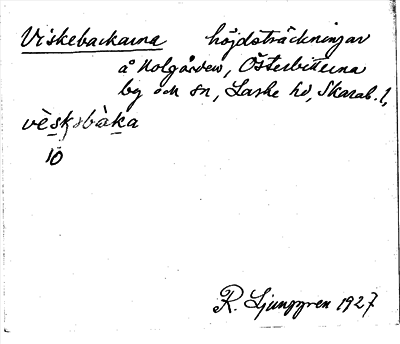 Viskebackarna höjdsträckningar
å Nolgården, Österbitterna
by och sn, Laske hd, Skarab. l,
vèsksbàka
10
R. Ljunggren 1927